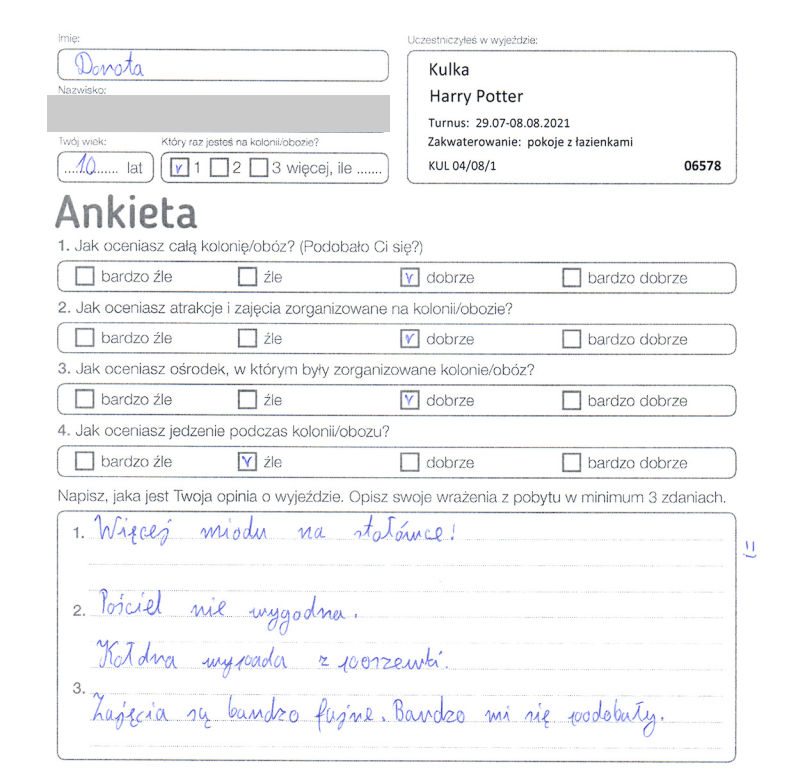 Imię:
Dorota
Nazwisko:
Twój wiek:
10 lat
Który raz jesteś na kolonii/obozie?
1 2 3 więcej, ile .......
Uczestniczyłeś w wyjeździe:
Kulka
Harry Potter
Turnus: 29.07-08.08.2021
Zakwaterowanie: pokoje z łazienkami
KUL 04/08/1 06578
Ankieta
1. Jak oceniasz całą kolonię/obóz? (Podobało Ci się?)
bardzo źle źle dobrze bardzo dobrze
2. Jak oceniasz atrakcje i zajęcia zorganizowane na kolonii/obozie?
bardzo źle źle dobrze bardzo dobrze
3. Jak oceniasz ośrodek, w którym były zorganizowane kolonie/obóz?
bardzo źle źle dobrze bardzo dobrze
4. Jak oceniasz jedzenie podczas kolonii/obozu?
bardzo źle źle dobrze bardzo dobrze
Napisz, jaka jest Twoja opinia o wyjeździe. Opisz swoje wrażenia z pobytu w minimum 3 zdaniach.
1. Więcej miodu na stołówce!
2. Pościel nie wygodna.
Kołdra wypada z poszewki.
3. Zajęcia są bardzo fajne. Bardzo mi się podobały.